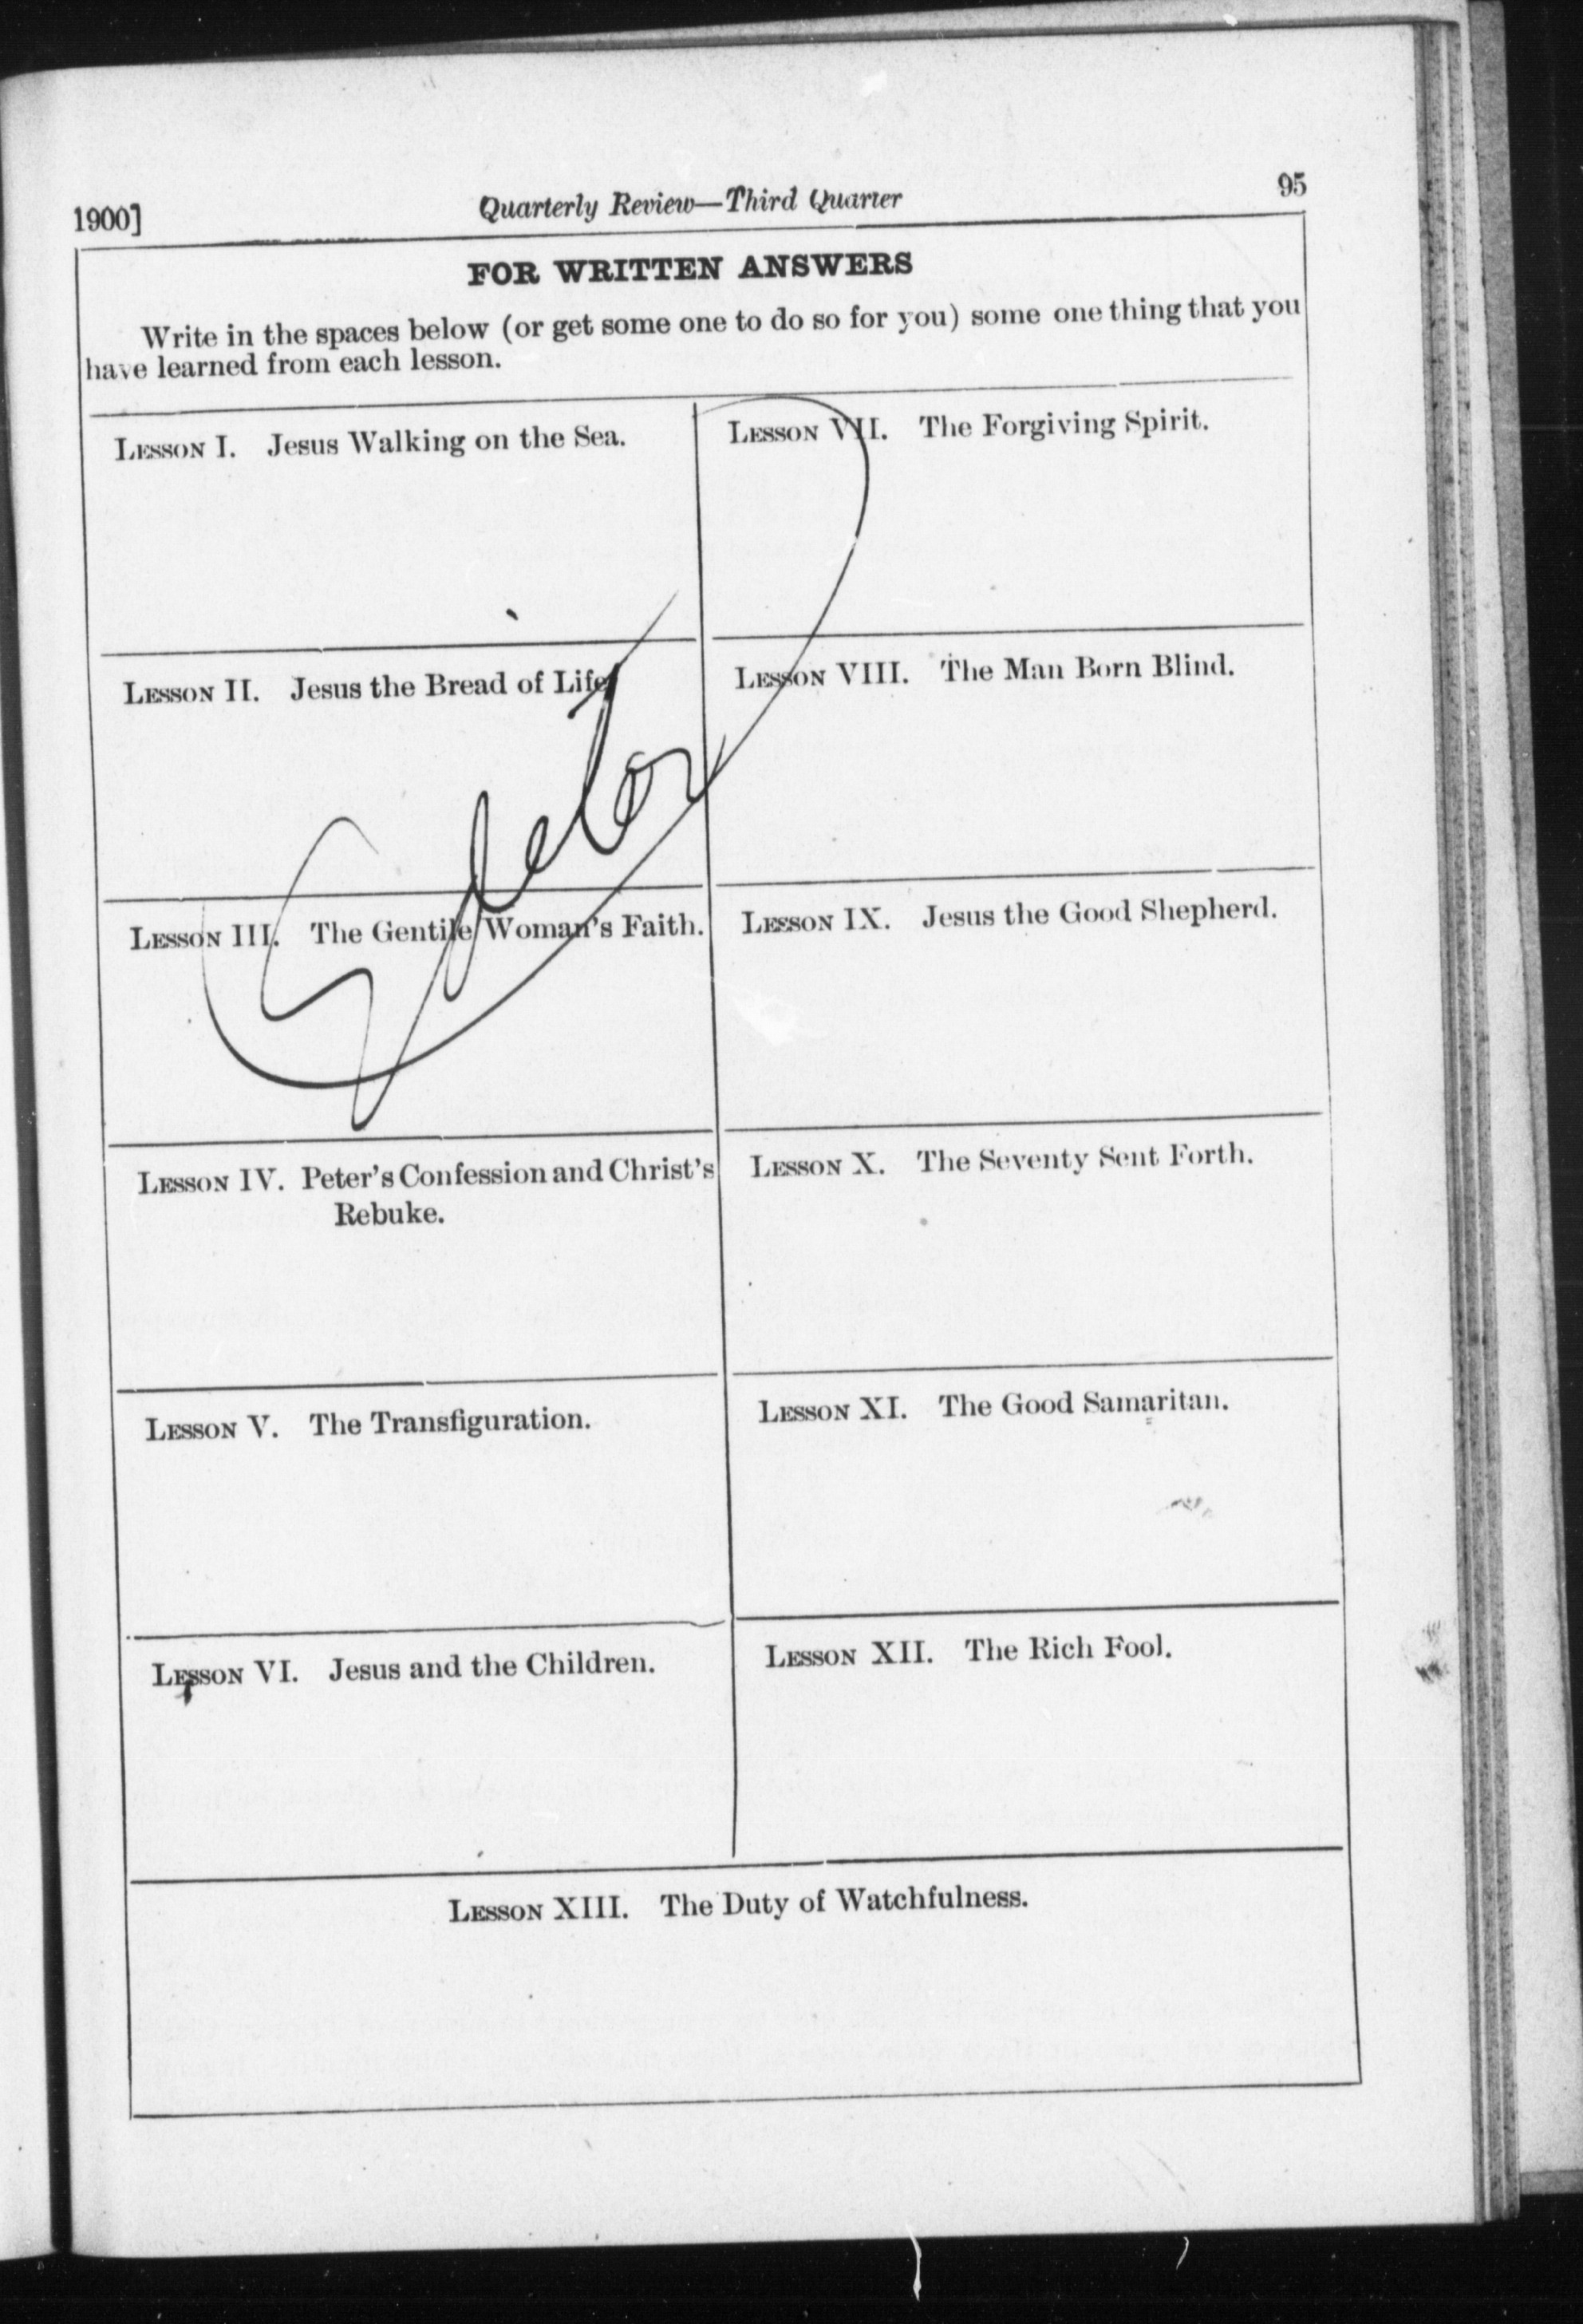 1900]
Quarterly Review—Third Quarter
95
FOR WRITTEN ANSWERS
Write in the spaces below (or get some one to do so for you) some one thing that you
have learned from each lesson.
LESSON I. Jesus Walking on the Sea.
LESSON II. Jesus the Bread of Life.
LESSON III. The Gentile Woman's Faith.
LESSON IV. Peter's Confession and Christ's
Rebuke.
LESSON V. The Transfiguration.
LESSON VI. Jesus and the Children.
LESSON VII. The Forgiving Spirit.
LESSON VIII. The Man Born Blind.
LESSON IX. Jesus the Good Shepherd.
LESSON X. The Seventy Sent Forth.
LESSON XI. The Good Samaritan.
LESSON XII. The Rich Fool.
LESSON XIII. The Duty of Watchfulness.